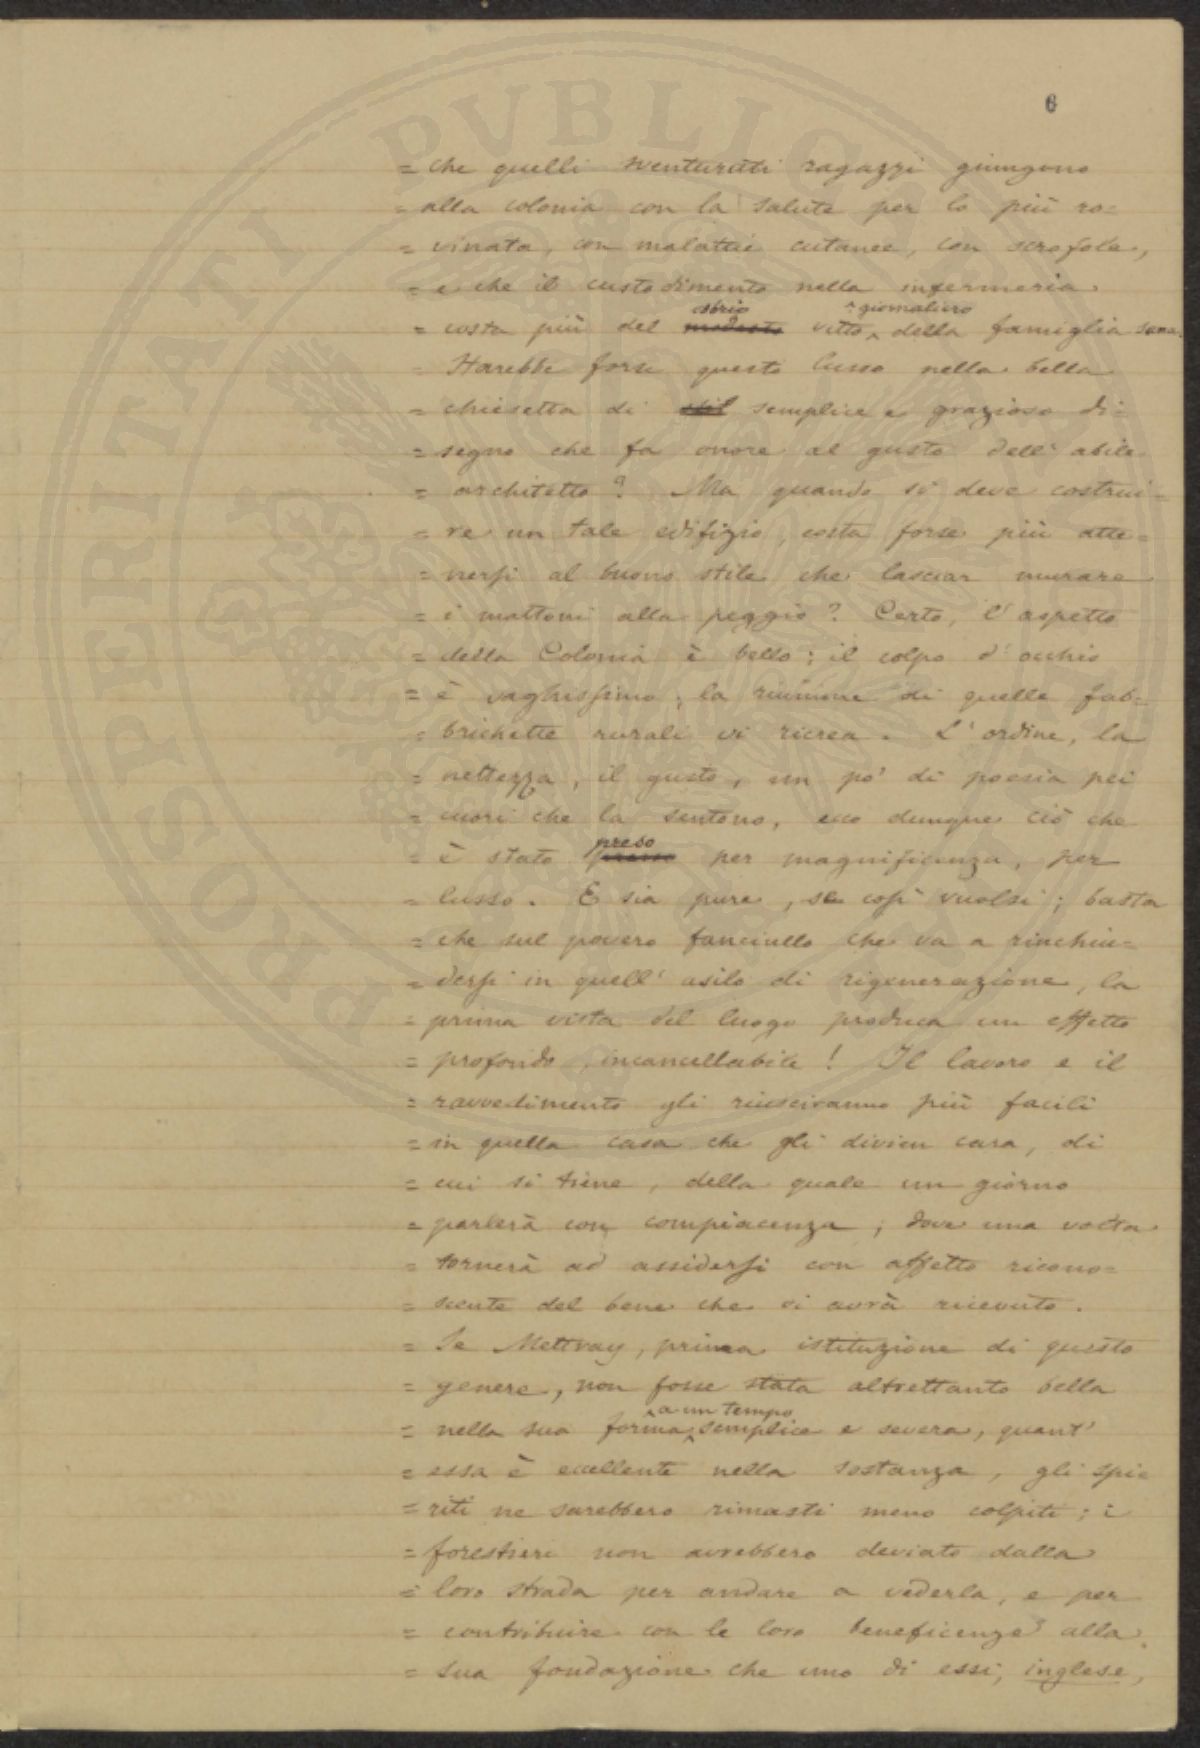 6
= che quelli sventurati ragazzi giungono
= alla colonia con la salute per lo più ro=
= vinata, con malattie cutanee, con scrofole,
= e che il custodimento nella infermeria
sobrio ^ giornaliero
= costa più del modesto vitto ^ della famiglia sana.
= Starebbe forse questo lusso nella bella
= chiesetta di stil semplice e grazioso di=
= segno che fa onore al gusto dell' abile
= architetto? Ma quando si deve costrui=
= re un tale edifizio, costa forse più atte=
= nersi al buono stile che lasciar murare
= i mattoni alla peggio? Certo, l' aspetto
= della Colonia è bello; il colpo d' occhio
= è vaghissimo; la riunione di quelle fab=
= brichette rurali vi ricrea. L' ordine, la
= nettezza, il gusto, un po' di poesia pei
= cuori che la sentono, ecco dunque ciò che
preso
= è stato per magnificenza, per
= lusso. E sia pure, se così vuolsi; basta
= che sul povero fanciullo che va a rinchiu=
= dersi in quell' asilo di rigenerazione, la
= prima vista del luogo produca un effetto
= profondo, incancellabile! Il lavoro e il
= ravvedimento gli riusciranno più facili
= in quella casa che gli divien cara, di
= cui si tiene, della quale un giorno
= parlerà con compiacenza; dove una volta
= tornerà ad assidersi con affetto ricono=
= scente del bene che vi avrà ricevuto.
= Se Mettray, prima istituzione di questo
= genere, non fosse stata altrettanto bella
^ a un tempo
= nella sua forma ^ semplice e severa, quant'
= essa è eccellente nella sostanza, gli spi=
= riti ne sarebbero rimasti meno colpiti; i
= forestieri non avrebbero deviato dalla
= loro strada per andare a vederla, e per
= contribuire con le loro beneficenze alla
= sua fondazione che uno di essi, inglese,
PROSPERITATI PVBLICAE